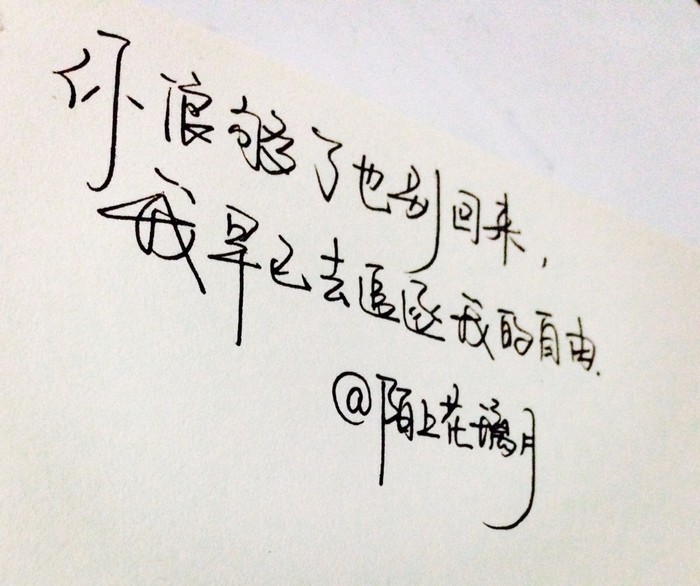 你浪够了也别回来,
我早已去追逐我的自由.
@陌上花璃月